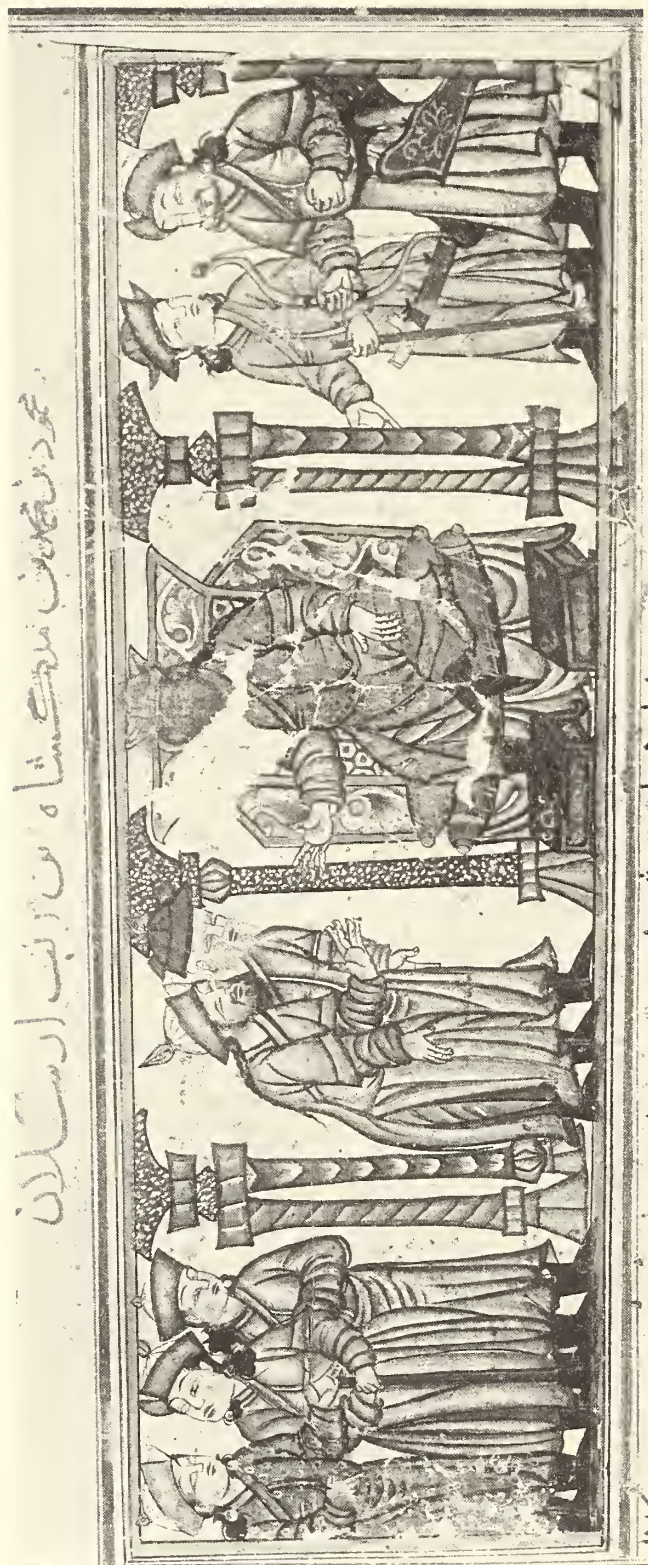 محمود بن محمد بن ملكشاه بن الب ارسلان